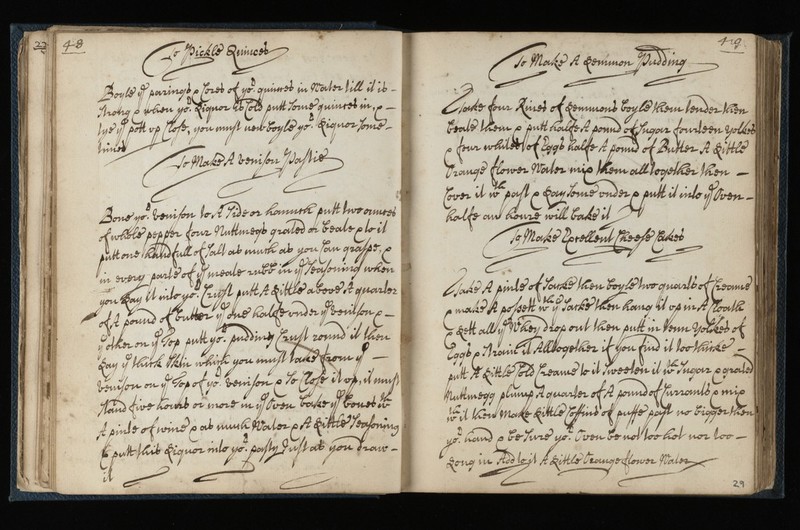 22
48
To Pickle Quinces
Boyle yͤ parings & Cores of yoͬ quinces in Water till it is -
strong & when yoͬ Liquor is Cold putt some quinces in, & -
tye yͤ pott vp Close, you must new boyle yoͬ Liquor some -
times
To Make A Venison Pastie
Bone yoͬ Venison to A Side or hannch putt two ounces
of whole pepper four Nuttmegs grated or beate & to it
putt one handfull of salt as much as you Can graspe, &
in every parte of yͤ meate rubb in yͤ Seasoning when
you Lay it into yoͬ Crust putt A Little above A quarter
of A pound of butter yͤ one halfe vnder yͤ Venison & -
yͤ other on yͤ Top putt yoͬ pudding Crust round it then
Lay yͤ thick Skin which you must take from yͤ -
Venison on yͤ Top of yoͬ Venison & So Close it vp, it must
stand five howrs or more in yͤ Oven bake yͤ bones wͭͪ
A pinte of wine & as much Water & A Little Seasoning
& putt this Liquor into yoͬ pasty Just as you draw -
it
49
To Make A Lemmon Pudding
Take four Rines of Lemmons boyle them tender then
beate them & putt halfe A pound of Sugar fourteen yolkes
& four whites of Eggs halfe A pound of Butter A Little
Orange flower Water mix them all together then -
Cover it wͭͪ past & Lay some vnder & putt it into yͤ Oven -
halfe an houre will bake it
To Make Excellent Cheese Cakes
Take A pinte of Sacke then boyle two quarts of Creame
& make A possett wͭͪ yͤ Sacke then hang it vp in A Cloath
& Lett all yͤ Whey drop out then putt in Tenn Yolkes of
Eggs & straine it All together if you find it too thicke -
putt A Little Cold Creame to it Sweeten it wͭͪ Sugar & grated
Nuttmegg plump A quarter of A pound of Currants & mix
wͭͪ it then make Little Coffins of puffe past no bigger then
yoͬ hand & be Sure yoͬ Oven be not too hot nor too -
Long in Add to it A Little Orange flower Water
29